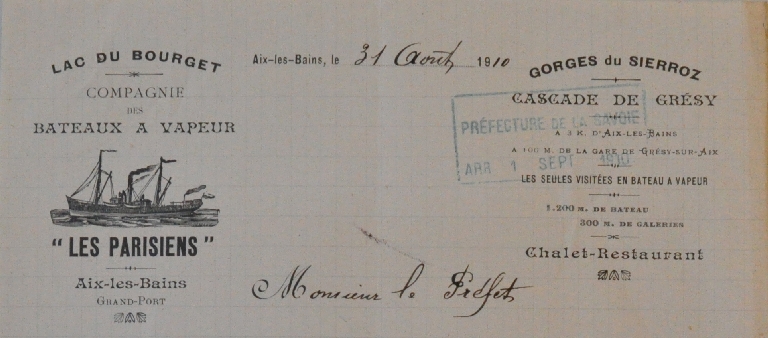 LAC DU BOURGET
COMPAGNIE
DES
BATEAUX A VAPEUR
"LES PARISIENS"
Aix-les-Bains
GRAND-PORT
Aix-les-Bains, le 31 Août 1910
GORGES du SIERROZ
CASCADE DE GRÉSY
A 3 K. D'AIX-LES-BAINS
A 100 M. DE LA GARE DE GRÉSY-SUR-AIX
LES SEULES VISITÉES EN BATEAU A VAPEUR
1.200 M. DE BATEAU
300 M. DE GALERIES
Chalet-Restaurant
PRÉFECTURE DE LA SAVOIE
ARR 1 SEPT 1910
Monsieur le Préfet